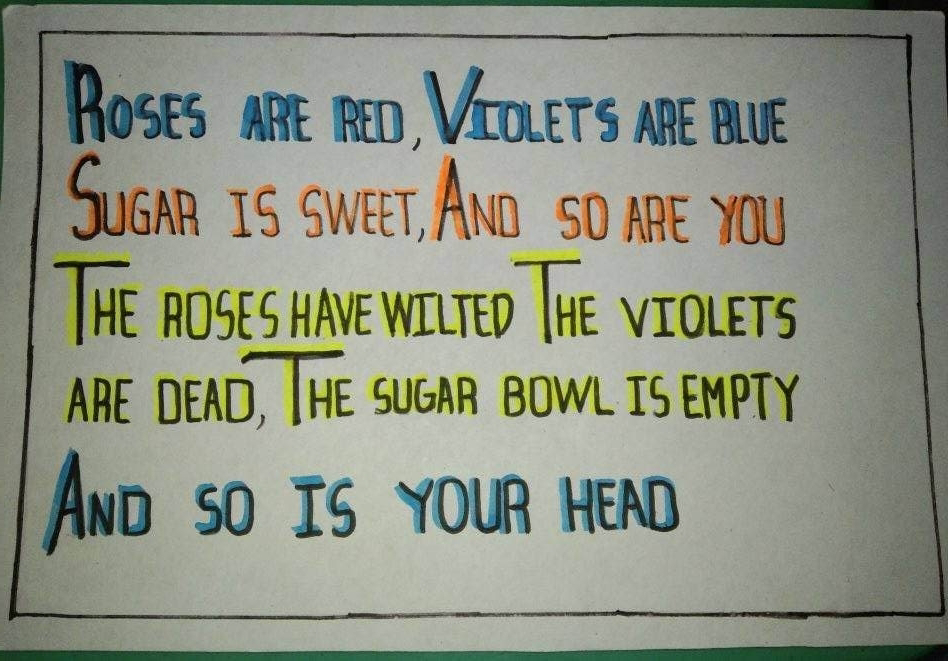 ROSES ARE RED, VIOLETS ARE BLUE
SUGAR IS SWEET, AND SO ARE YOU
THE ROSES HAVE WILTED THE VIOLETS
ARE DEAD, THE SUGAR BOWL IS EMPTY
AND SO IS YOUR HEAD